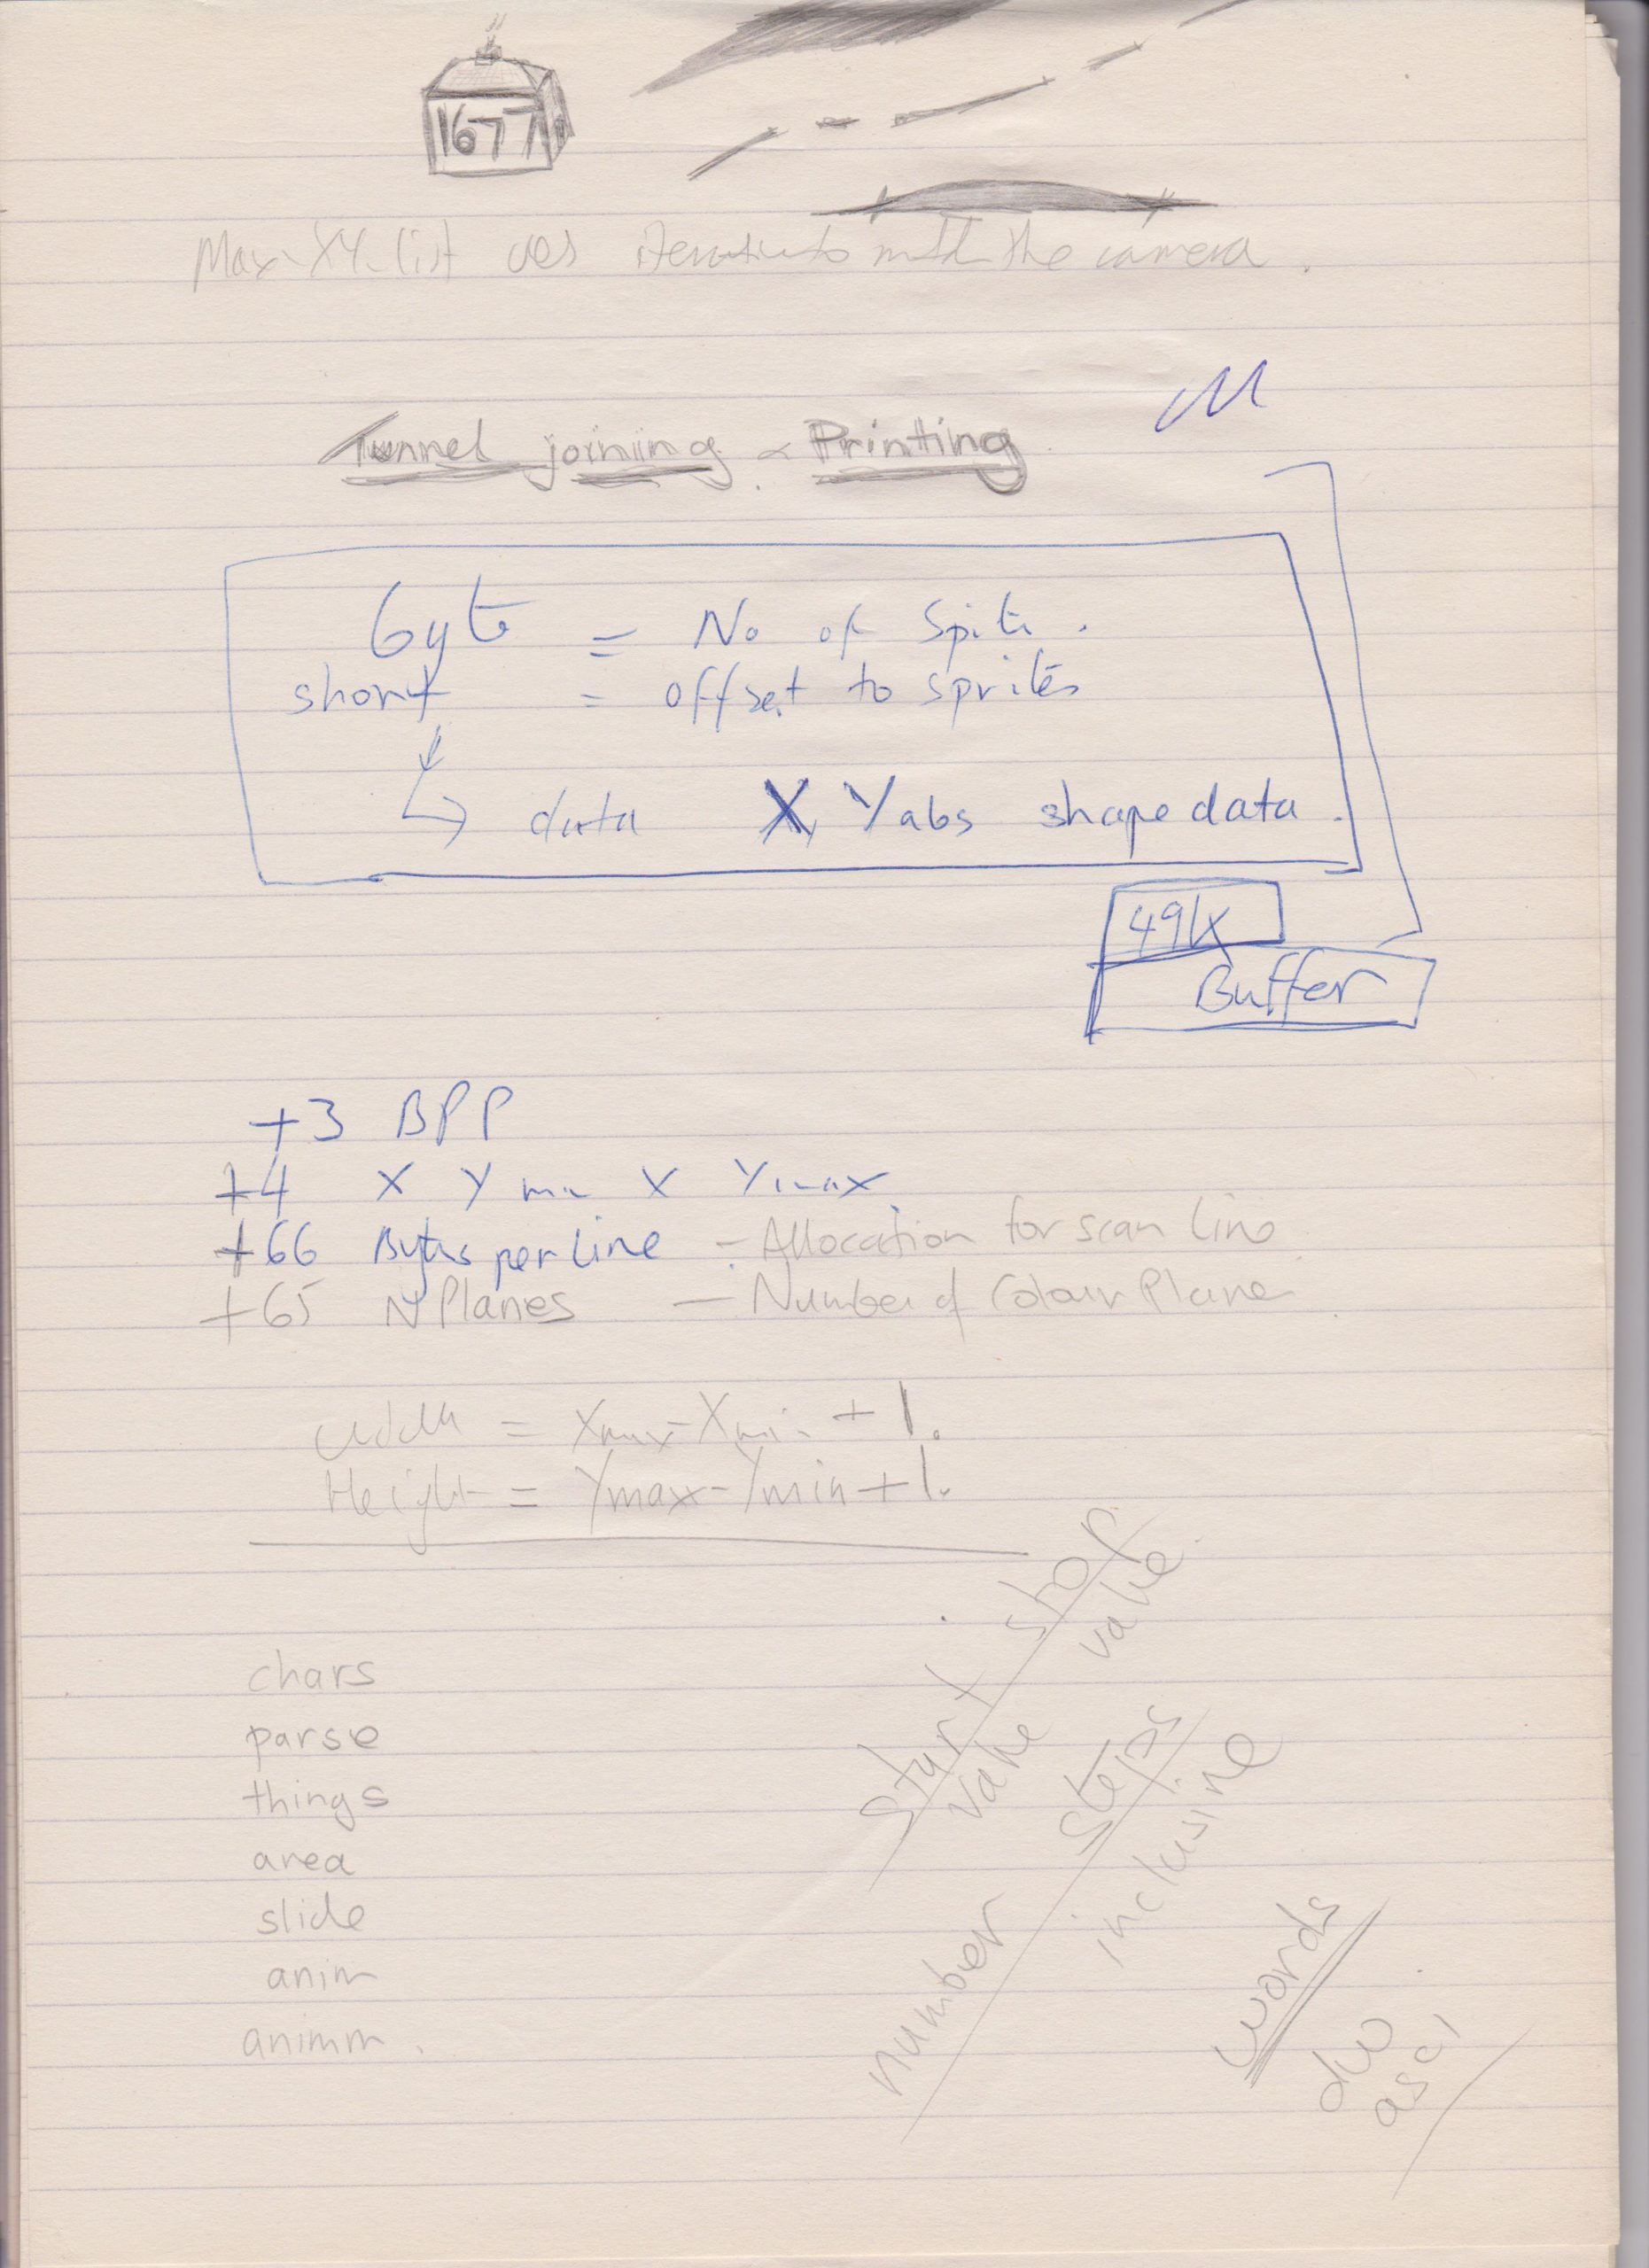 1677
Max-XY-list the camera.
Tunnel joining & Printing
byte = No of
short = offset to sprites
data X, Y abs shape data.
49k
Buffer
+3 BPP
+4 X Y min X Y max
+66 Bytes per line = Allocation for scan line
+65 N Planes — Number of Colour Plane
Width = Xmax - Xmin + 1.
Height = Ymax - Ymin + 1.
start stop
value value
number steps
inclusive
words
dw
asci
chars
parse
things
area
slide
anim
animm.